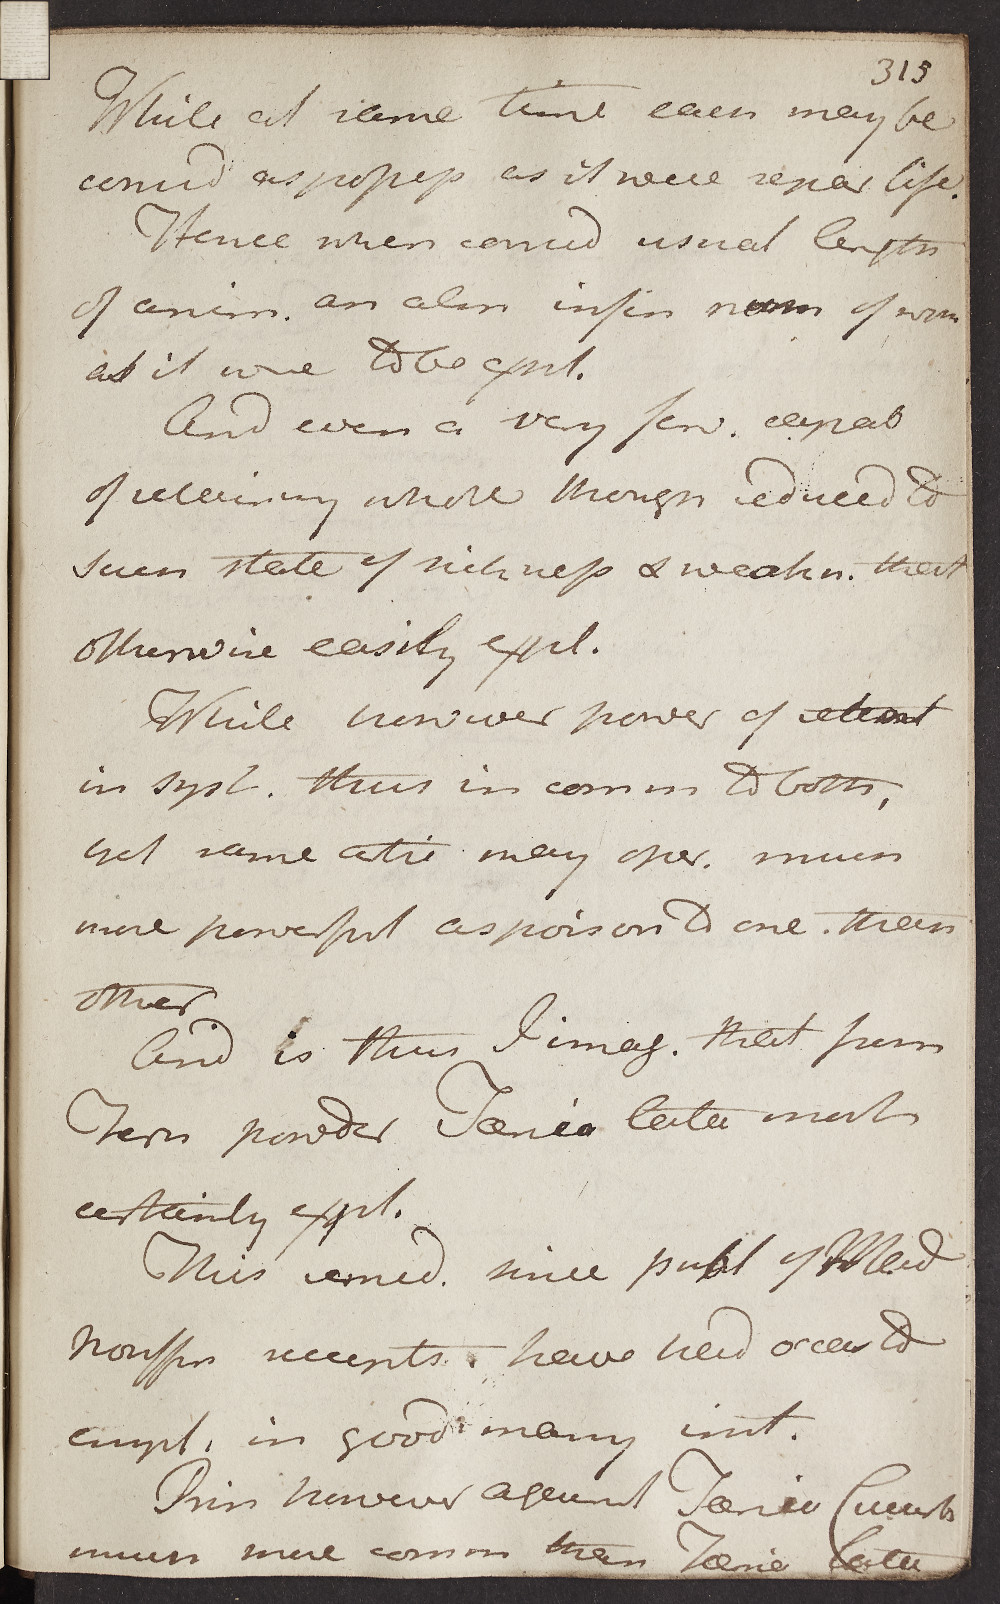 315
While at same time each may be
consid as possess as it were separ life.
Hence when consid usual length
of anim. an alm infin num of worm
as it were to be expl.
And even a very few. capab
of retaining whole though reduced to
such state of sickness & weakn. that
otherwise easily expl.
While however power of retent
in syst. thus in comm to both,
yet same artic may oper. much
more powerful as poison to one. than
other
And is thus I imag. that from
Fern powder Taenia lata most
certainly expl.
This remed. since publ of Mad
Nouffer receipts. have had occas to
empl. in good many inst.
Prin however against Taenia Cucurb
much more comm than Taenia lata